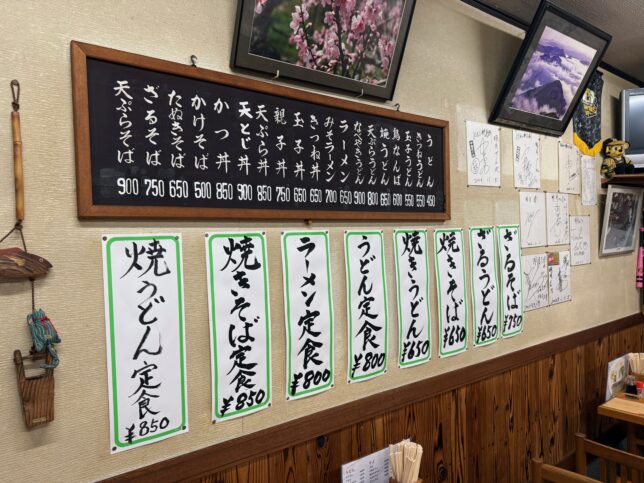 うどん 450
きつねうどん 550
玉子うどん 550
鳥なんば 600
焼うどん 650
天ぷらうどん 800
なべやきうどん 900
ラーメン 650
みそラーメン 700
きつね丼 650
玉子丼 650
親子丼 750
天ぷら丼 850
天とじ丼 900
かつ丼 850
かけそば 500
たぬきそば 650
ざるそば 750
天ぷらそば 900
ざるそば ¥750
ざるうどん ¥650
焼きそば ¥650
焼きうどん ¥650
うどん定食 ¥800
ラーメン定食 ¥800
焼きそば定食 ¥850
焼うどん定食 ¥850